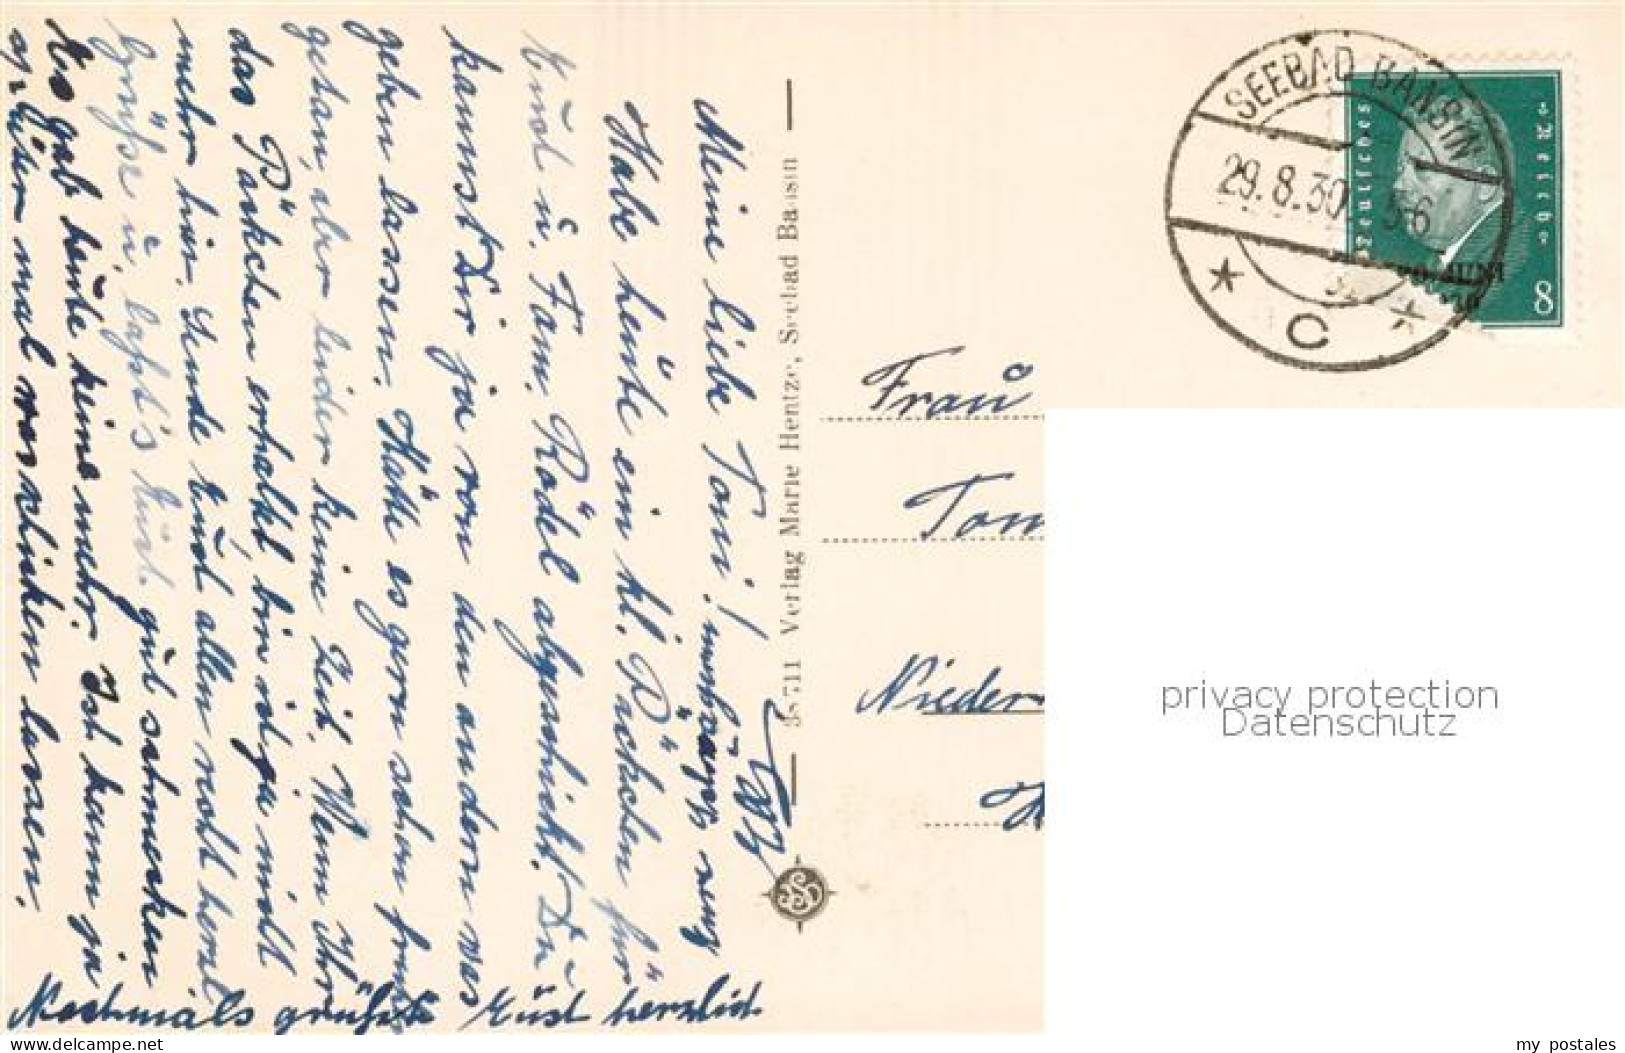 Meine liebe Toni!
Habe heute ein kl. Päckchen für
Euch u. Fam. Rödel abgeschickt. Du
kannst Dir ja von dem andern was
geben lassen. Hätte es gern schon früher
getan, aber leider keine Zeit. Wenn Ihr
das Päckchen erhaltet, bin ich ja nicht
mehr hier. Sende Euch allen recht herzl.
Grüsse u. lasst's Euch gut schmecken
Es gab heute keine mehr. Ich kann ja
später mal was schicken lassen.
Nochmals grüsst Euch herzlich
38711 Verlag Marie Hentze, Seebad Bansin
SEEBAD BANSIN
29.8.30. 5-6
C
Deutsches Reich
8
30. JUNI
1930
Frau
Ton
Nieder
privacy protection
Datenschutz
www.delcampe.net
my_postales